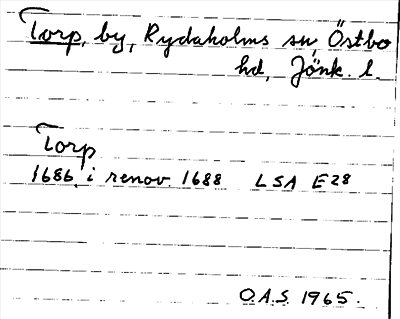 Torp, by, Rydaholms sn, Östbo
hd, Jönk. l.
Torp
1686 i renov. 1688 LSA E28
O.A.S. 1965.